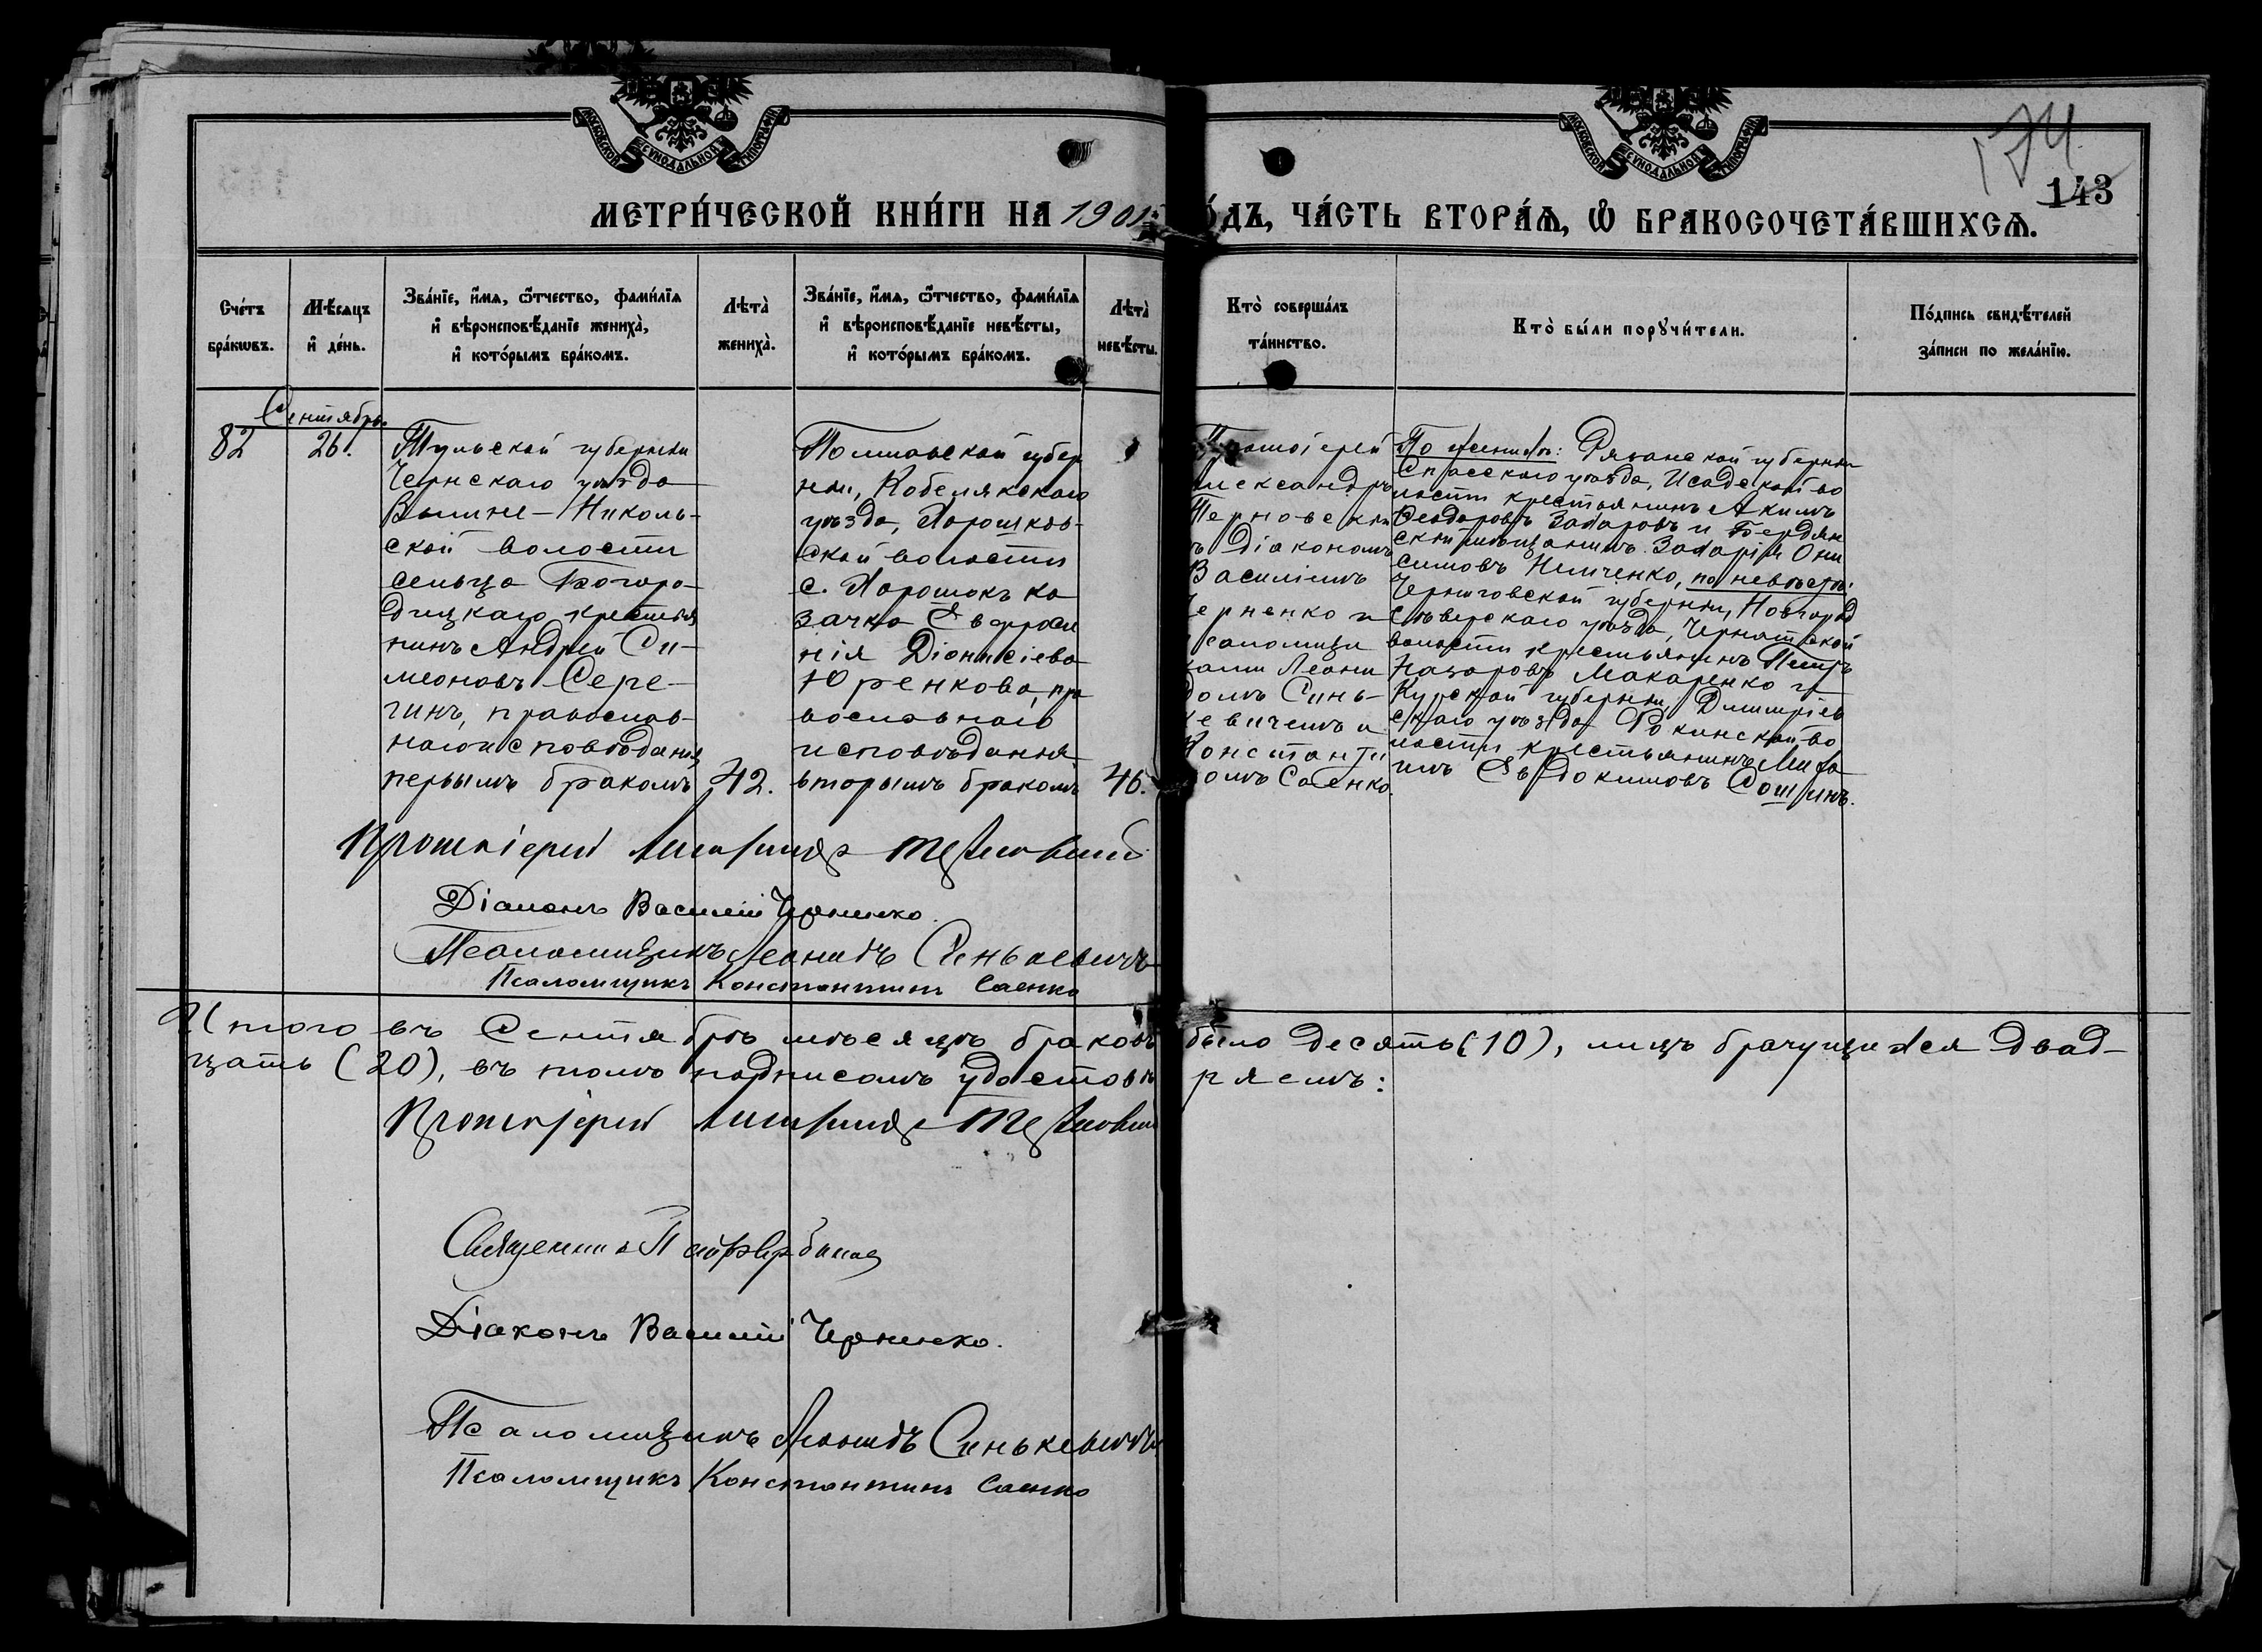 МОСКОВСКОЙ СѴНОДАЛЬНОЙ ТИПОГРАФІИ
МОСКОВСКОЙ СѴНОДАЛЬНОЙ ТИПОГРАФІИ
174
143
МЕТРИ́ЧЕСКОЙ КНИ́ГИ НА 1901
О́ДЪ, ЧА́СТЬ ВТОРА́Ѧ, Ѽ БРАКОСОЧЕТА́ВШИХСѦ.
Сче́тъ
бра́кѡвъ.
Мѣ́сѧцъ
и҆ де́нь.
Зва́нїе, и҆́мѧ, ѻ҆́тчество, фами́лїѧ
и҆ вѣроисповѣ́данїе жениха̀,
и҆ кото́рымъ бра́комъ.
Лѣта̀
жениха̀.
Зва́нїе, и҆́мѧ, ѻ҆́тчество, фами́лїѧ
и҆ вѣроисповѣ́данїе невѣ́сты,
и҆ кото́рымъ бра́комъ.
Лѣта̀
невѣ́сты.
Кто̀ соверша́лъ
та́инство.
Кто̀ бы́ли порꙋчи́тели.
По́дпись свидѣ́телей
за́писи по жела́нїю.
Сентябрь
82
26.
Тульской губерніи
Чернскаго уѣзда
Выпше-Николь-
ской волости
сельца Богоро-
дицкаго крестья
нинъ Андрей Си-
меоновъ Серё-
гинъ, православ-
наго исповѣданія
первымъ бракомъ
42.
Полтавской губер
ніи, Кобелякскаго
уѣзда, Хорошков-
ской волости
с. Хорошокъ ка
зачка Евфроси
нія Діонисіева
Юренкова, пра
вославнаго
исповѣданія
вторымъ бракомъ
46.
Протоіерей
лександръ
Терновскій
ъ діакономъ
Василіемъ
ерненко и
саломщи
ками Леони
домъ Синь-
кевичемъ и
Константи
омъ Саенко.
По женихѣ: Рязанской губерніи
Спасскаго уѣзда, Исадской во
лости крестьянинъ Акимъ
Ѳеодоровъ Захаровъ и Бердян
скій мѣщанинъ Захарій Они
симовъ Немченко, по невѣстѣ:
Черниговской губерніи, Новгород
сѣверскаго уѣзда, Чернатской
волости крестьянинъ Петръ
Назаровъ Макаренко и
Курской губерніи, Дмитріев
скаго уѣзда Фокинской во
лости крестьянинъ Миха
илъ Евдокимовъ Сошинъ.
Протоіерей Александръ Терновский
Діаконъ Василій Черненко.
Псаломщикъ Леонидъ Синькевичъ
Псаломщикъ Константинъ Саенко
Итого въ Сентябрѣ мѣсяцѣ браковъ было десять (10), лицъ брачущихся двад-
цать (20), въ томъ подписомъ удостовѣряемъ:
Протоіерей Александръ Терновский
Священникъ
Діаконъ Василій Черненко.
Псаломщикъ Леонидъ Синькевичъ
Псаломщикъ Константинъ Саенко